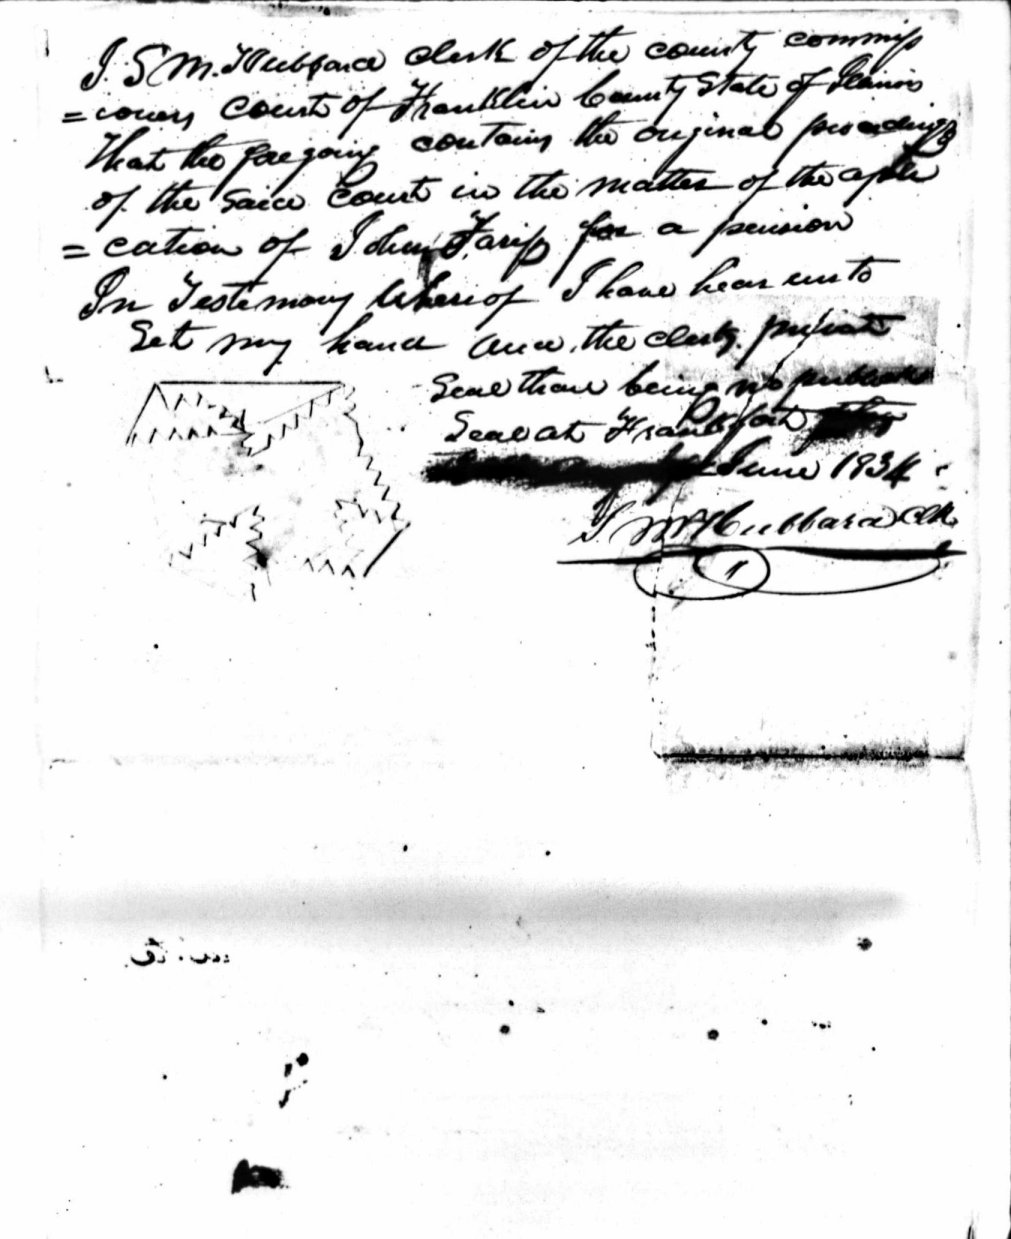 I. S. M. Hubbard clerk of the county commiss
=ioners Court of Franklin County State of Illinois
That the foregoing contains the original proceedings
of the said Court in the matter of the appli
=cation of John Fariss for a pension
In Testimony whereof I have hear unto
Set my hand and the clerks private
Seal thare being no publick
Seal at Frankfort
June 1834
S M Hubbard Clk
1